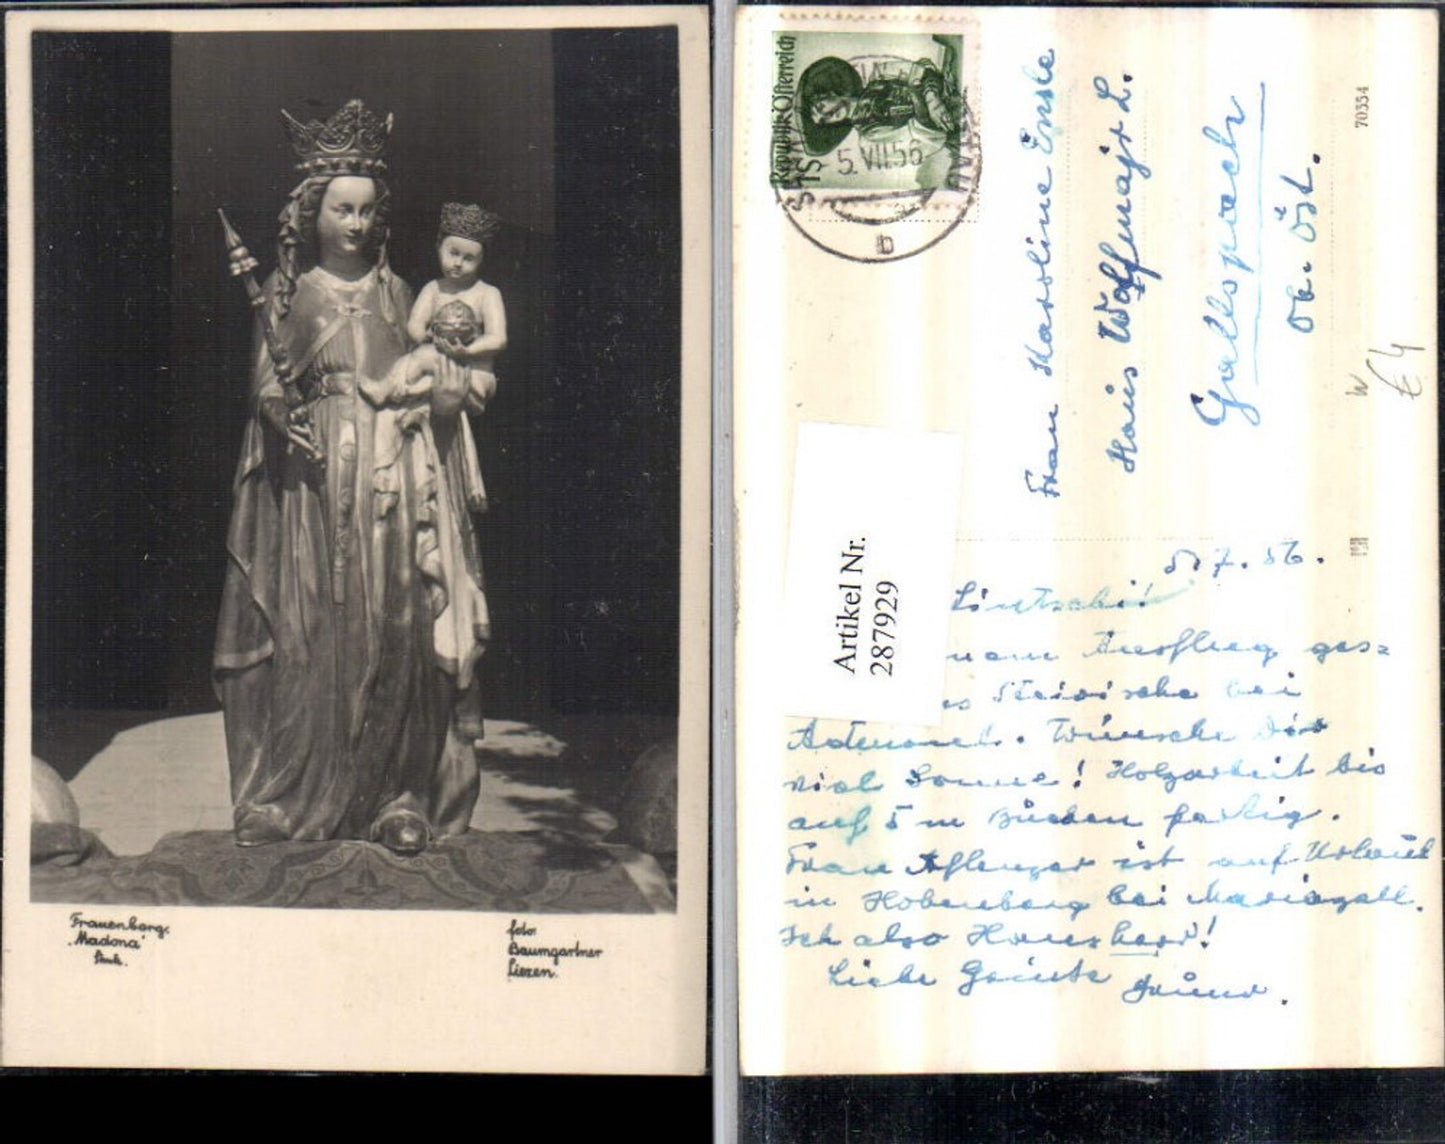 Frauenberg.
"Madona"
Stmk.
foto
Baumgartner
Liezen.
Republik Österreich
5. VII. 56
b
Frau Karoline Ensle
Haus Wolfmajr L.
Gallspach
Ob. Öst.
70354
Artikel Nr.
287929
5. 7. 56.
Ausflug ges=
Steirische bei
Admont. Wünsche Dir
viel Sonne! Holzarbeit bis
auf 5 m Buchen fertig.
Frau Aflenzer ist auf Urlaub
in Hobenberg bei Mariazell.
Ich also Hausherr!
Liebe Grüsse